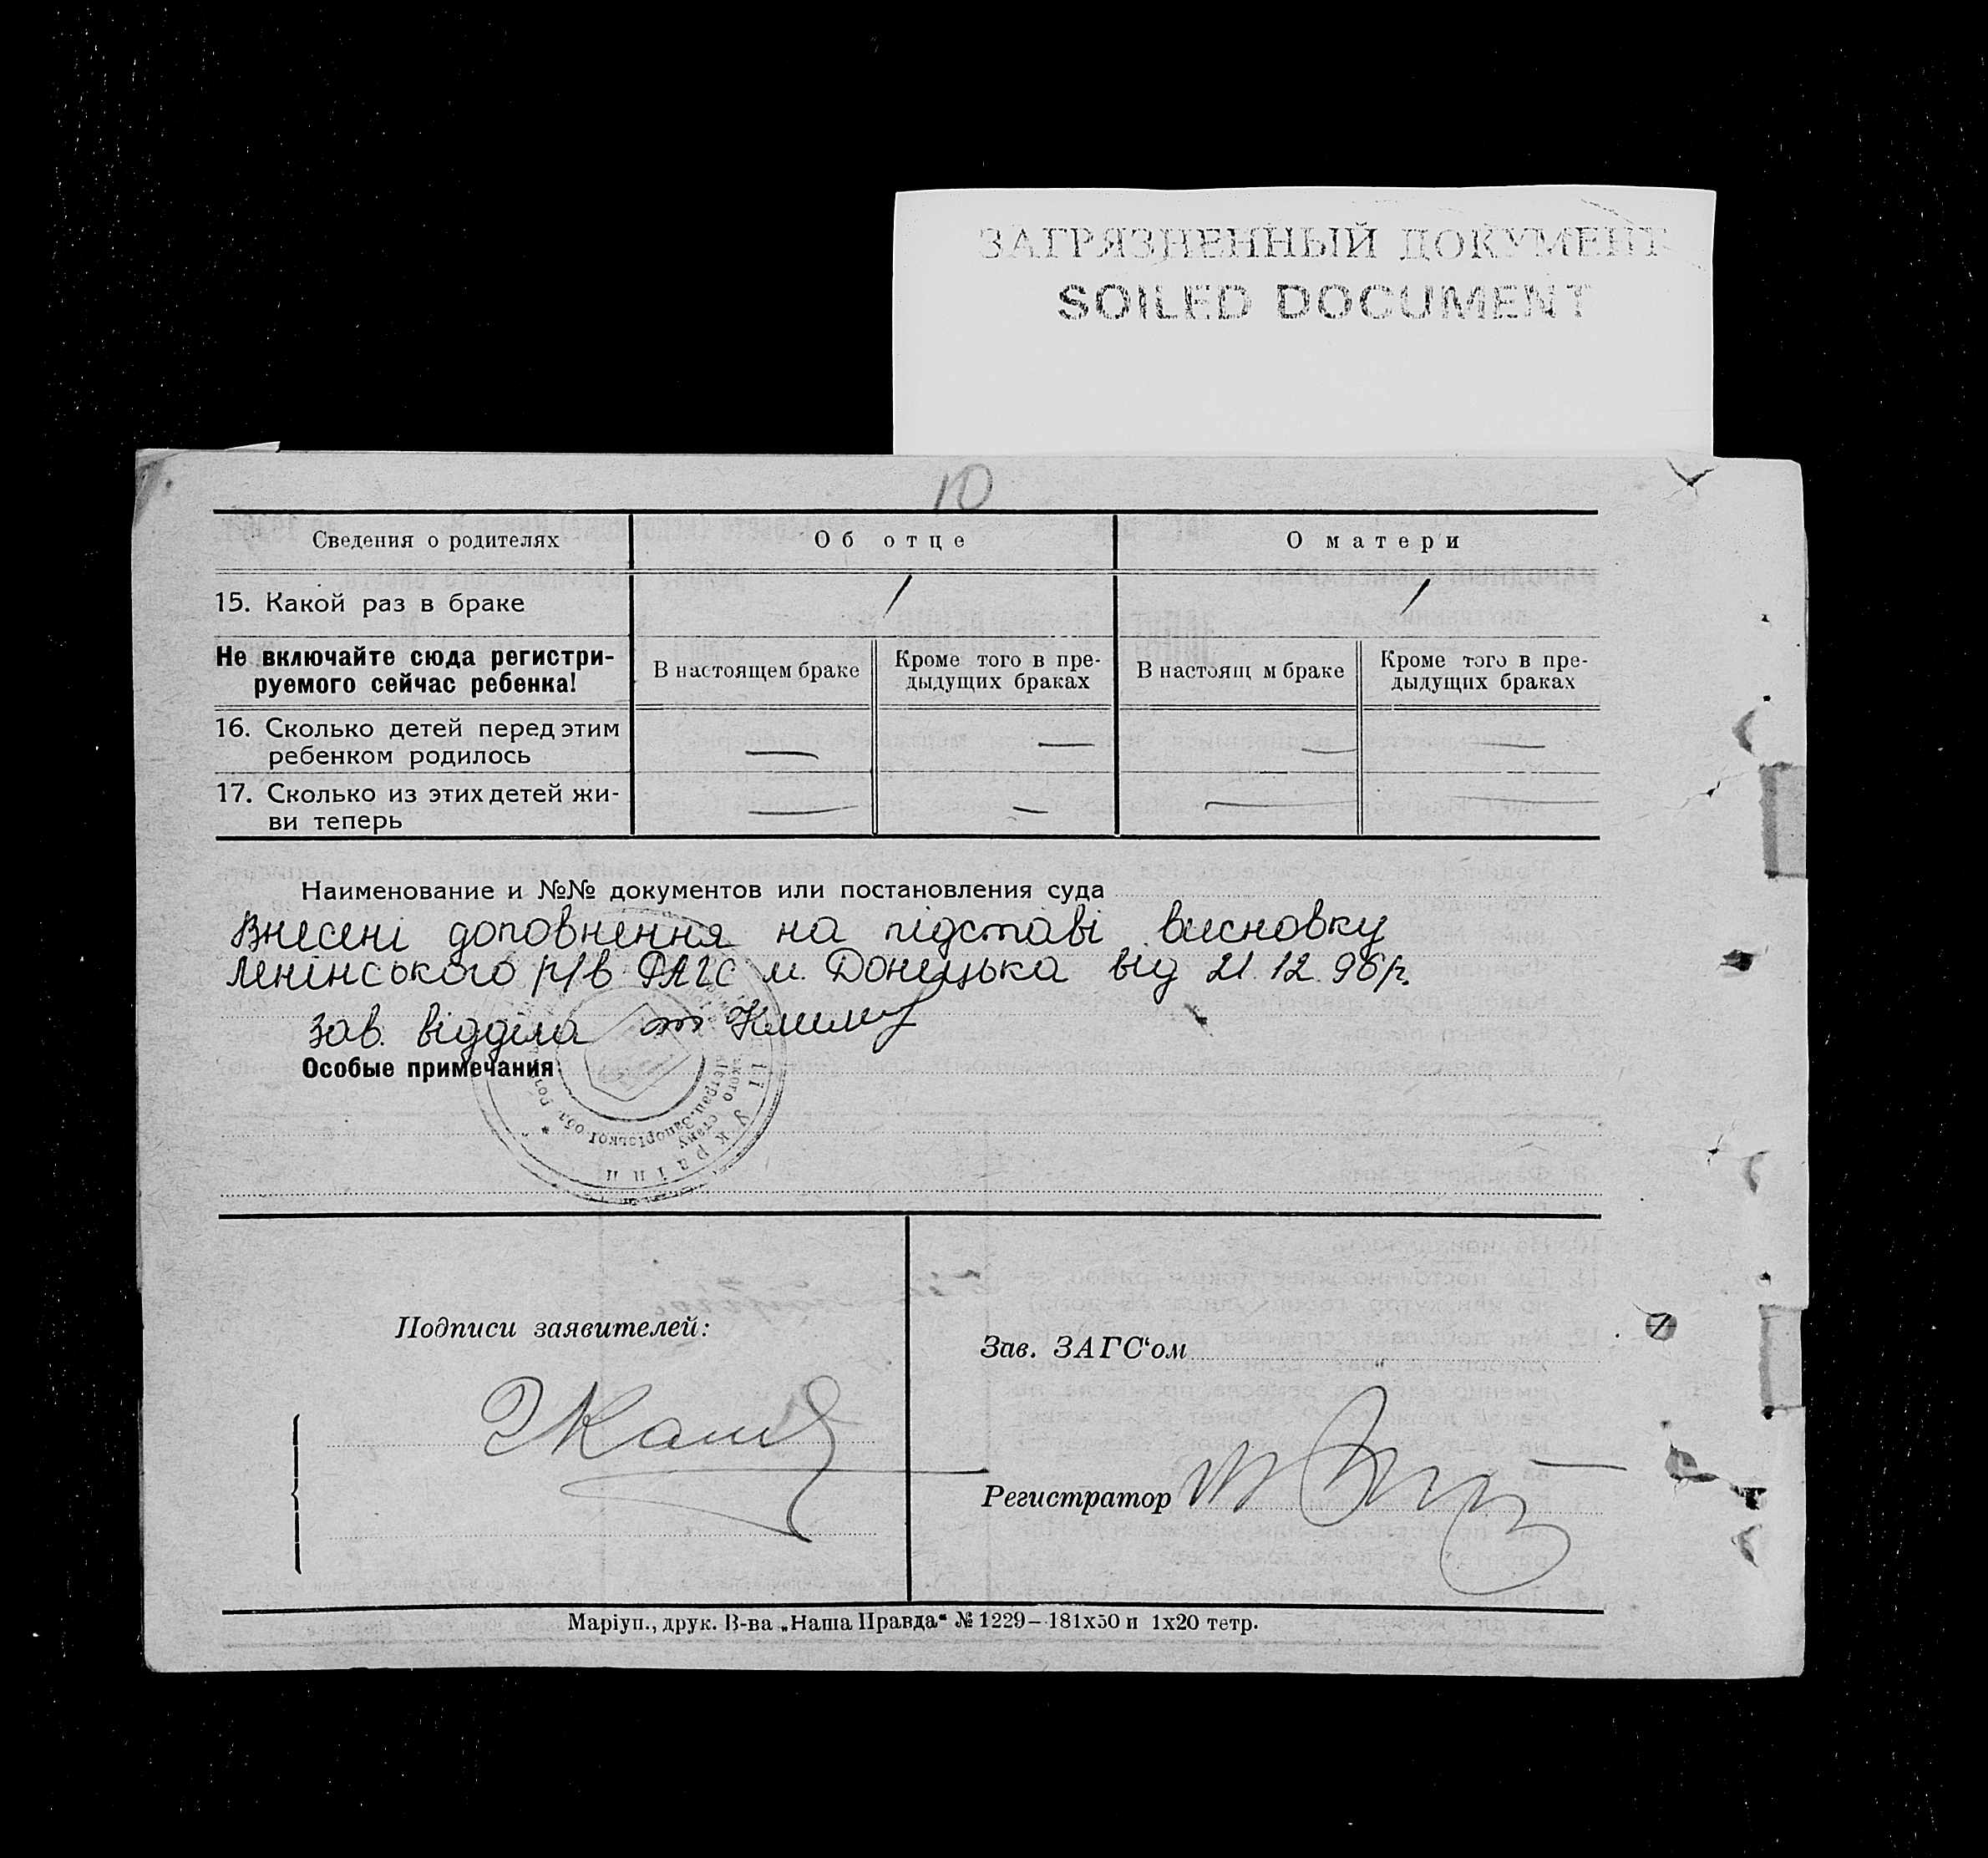 ЗАГРЯЗНЕННЫЙ ДОКУМЕНТ
SOILED DOCUMENT
10
Сведения о родителях
Об отце
О матери
15. Какой раз в браке
1
1
Не включайте сюда регистри-
руемого сейчас ребенка!
В настоящем браке
Кроме того в пре-
дыдущих браках
В настоящ м браке
Кроме того в пре-
дыдущих браках
16. Сколько детей перед этим
ребенком родилось
— — — —
17. Сколько из этих детей жи-
ви теперь
— — — —
Наименование и №№ документов или постановления суда
Внесені доповнення на підставі висновку
Ленінського р/в РАГС м. Донецька від 21.12.96р.
Зав. відділа
Особые примечания:
України
Запорізької обл
стану
Подписи заявителей:
Зав. ЗАГС‘ом
Регистратор
Маріуп., друк. В-ва „Наша Правда“ № 1229–181х50 и 1х20 тетр.